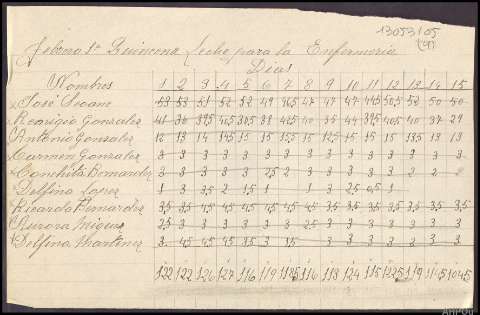 13053/05
(4)
Febrero 1ª Quincena Leche para la Enfermeria
Dias
Nombres 1 2 3 4 5 6 7 8 9 10 11 12 13 14 15
José Seoane 53 53 51 52 52 49 46,5 47 47 47 44,5 50,5 52 50 50
Remigio Gonzalez 41 36 39,5 40,5 30,5 38 40,5 40 35 44 39,5 40,5 40 37 29
Antonio Gonzalez 12 13 14 14,5 15 15 15,5 15 12,5 15 15 15 13,5 13 13
Carmen Gonzalez 3 3 3 3 3 3 3 3 3 3 3 3 3 3 3
Conchita Bernardez 3 3 3 3 3 2,5 2 3 3 3 3 3 2 2 2
Delfina Lopez 1 3 2,5 2 1,5 1 1 3 2,5 0,5 1
Ricardo Bernardez 3,5 3,5 4,5 4,5 4,5 4,5 4,5 4,5 3,5 3,5 3,5 3,5 3,5 3,5 3,5
Aurora Miguez 2,5 3 3 3 3 3 3 2,5 3 3 3 3 3 3 3
Delfina Martinez 3 4,5 4,5 4,5 3,5 3 3,5 3 3 3 3 2 3
122 122 126 127 116 119 118,5 116 113 124 115 122,5 119 114,5 104,5
AHPOu